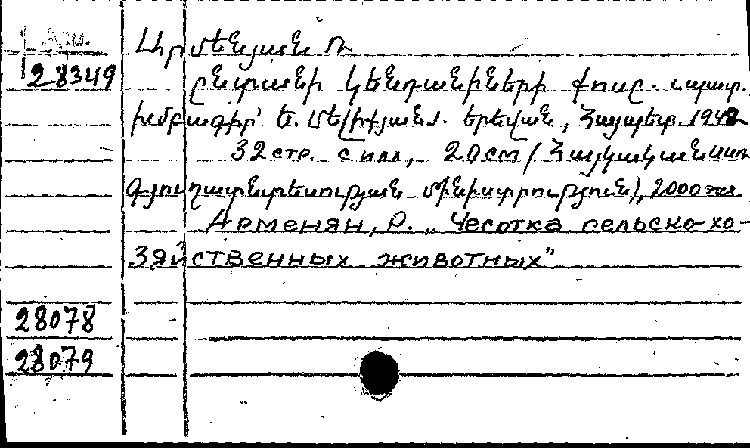 28349
ընտանի կենդանիների քոսը. պատ.
խմբագիր՝ Ե. Մելիքյան. Երևան, Հայպետ. 1942
32 стр. с илл, 20 см / Հայկական ՍՍՌ
Գյուղատնտեսության մինիստրություն), 2000 экз
Арменян, Р. „ Чесотка сельско-хо-
зяйственных животных"
28078
28079